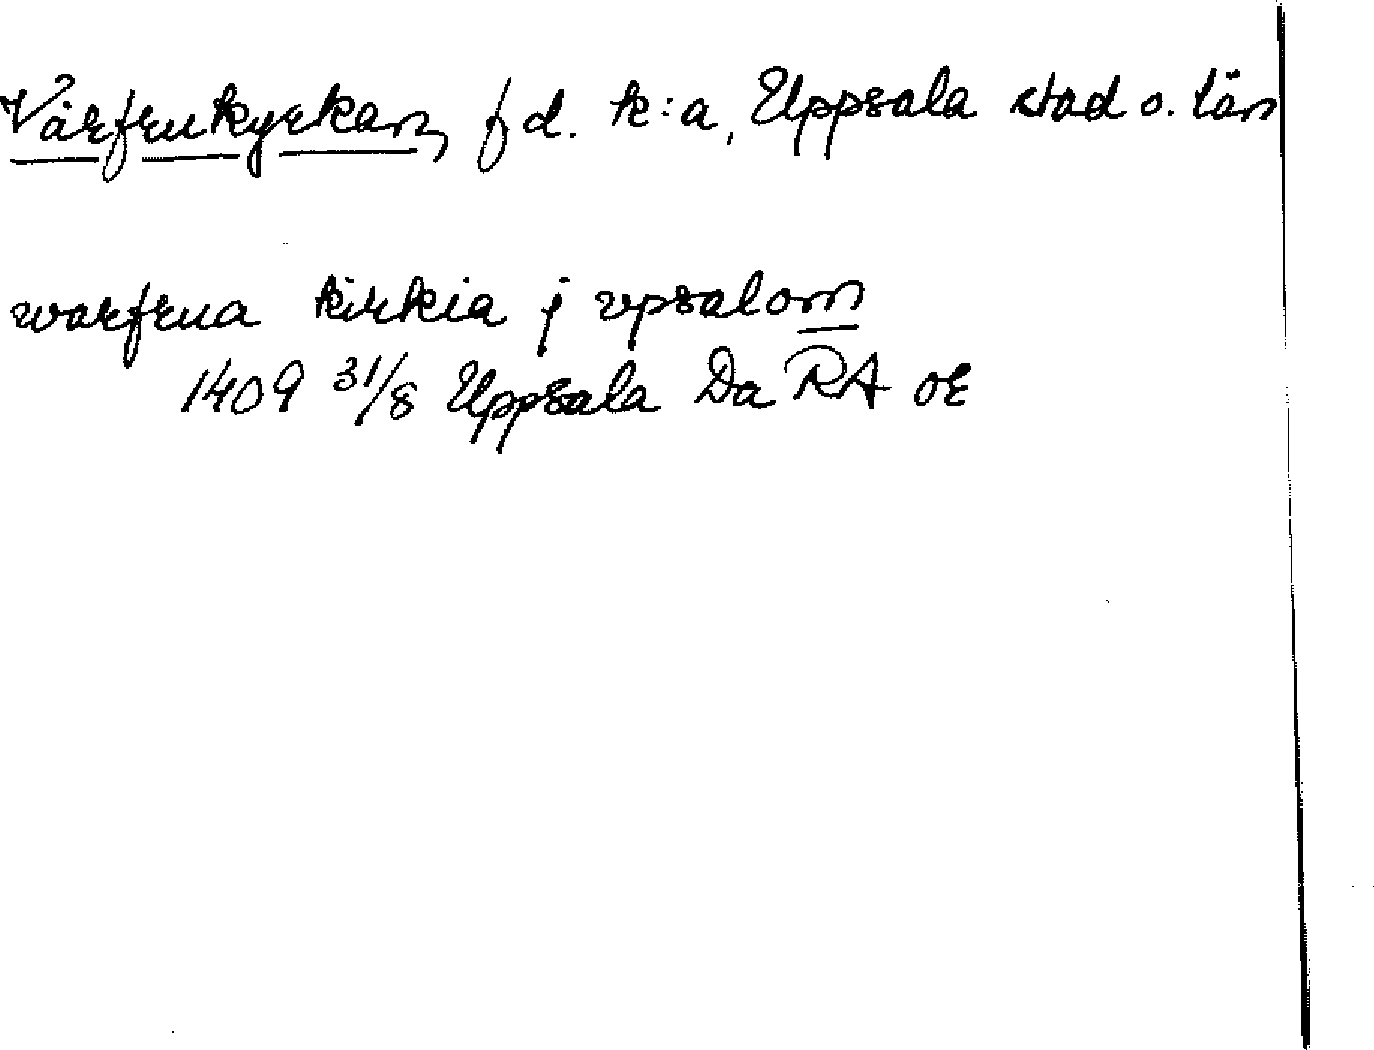 Vårfrukyrkan, f d. k:a, Uppsala stad o. län
warfrua kirkia j vpsalom
1409 31/8 Uppsala Da RA or